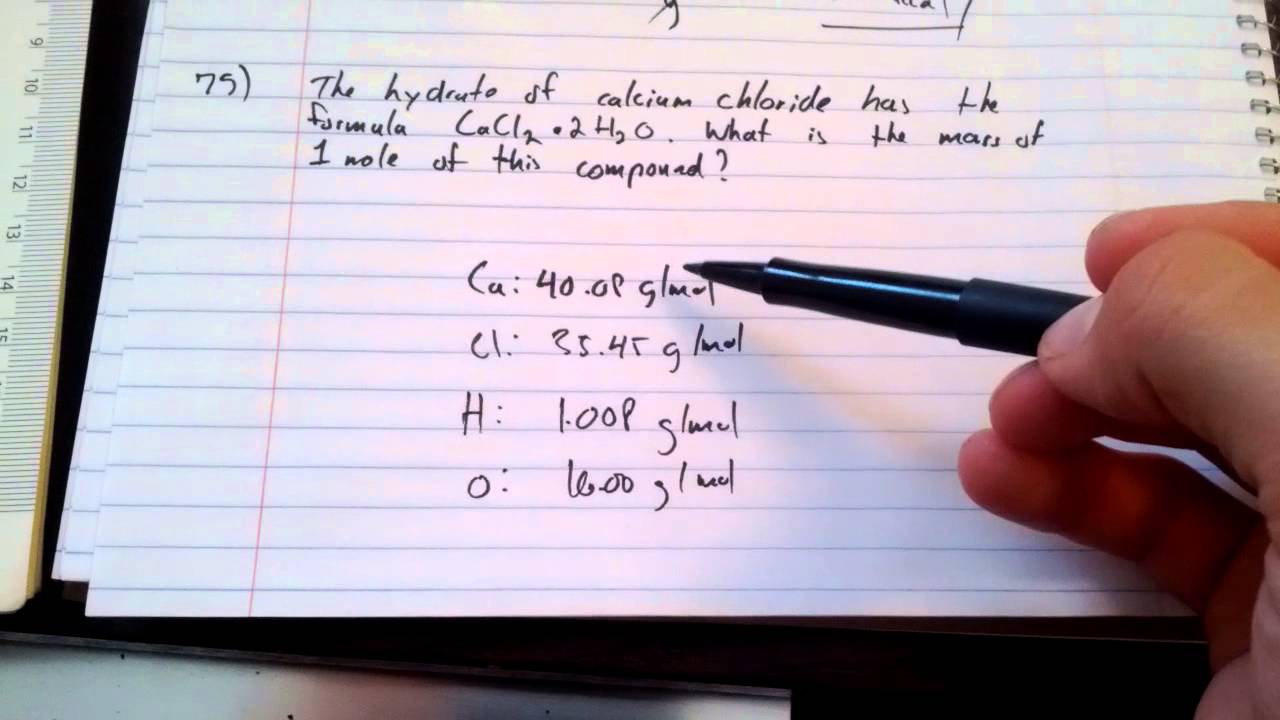 75) The hydrate of calcium chloride has the
formula CaCl₂•2H₂O. What is the mass of
1 mole of this compound?
Ca: 40.08 g/mol
Cl: 35.45 g/mol
H: 1.008 g/mol
O: 16.00 g/mol
9
10
11
12
13
14
15